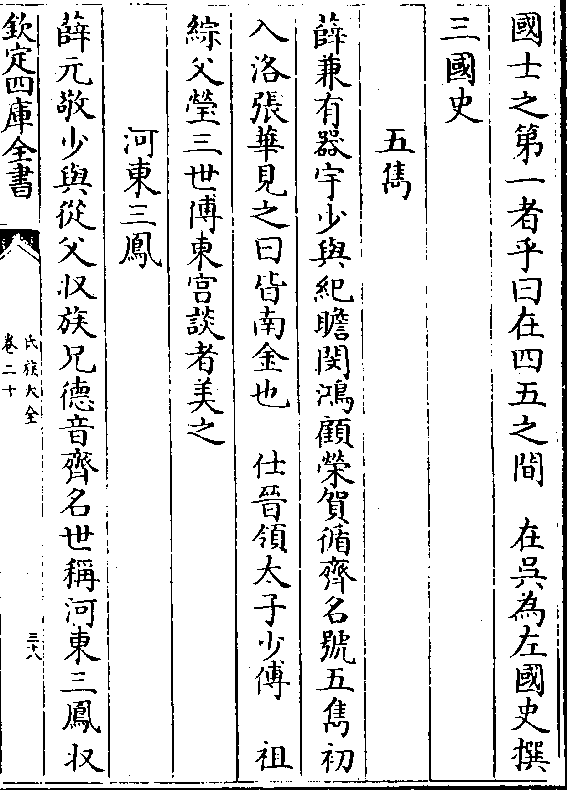 國士之第一者乎曰在四五之間　在吳為左國史撰
三國史
五雋
薛兼有器宇少與紀瞻閔鴻顧榮賀循齊名號五雋初
入洛張華見之曰皆南金也　仕晉領太子少傅　祖
綜父瑩三世傅東宮談者美之
河東三鳳
薛元敬少與從父収族兄德音齊名世稱河東三鳳収
欽定四庫全書
氏族大全
卷二十
三十八